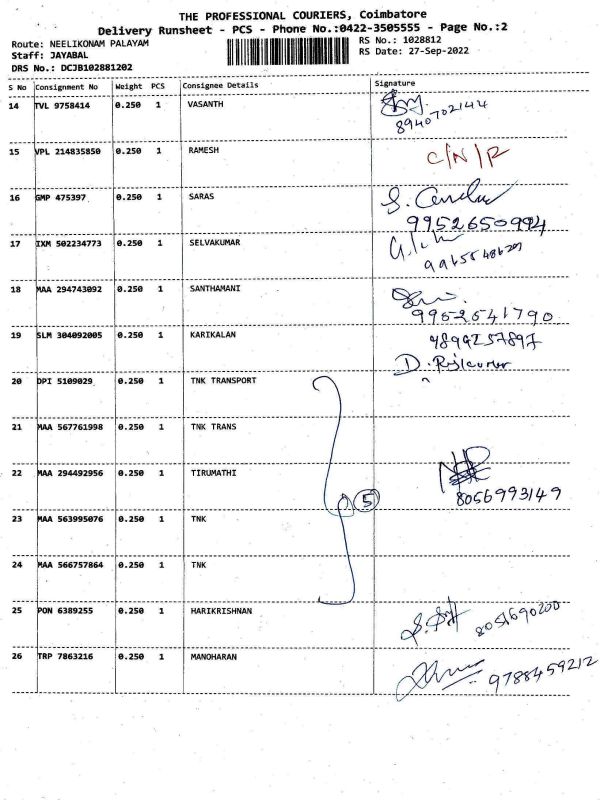 THE PROFESSIONAL COURIERS, Coimbatore
Delivery Runsheet - PCS - Phone No.:0422-3505555 - Page No.:2
Route: NEELIKONAM PALAYAM
RS No.: 1028812
Staff: JAYABAL
RS Date: 27-Sep-2022
DRS No.: DCJB102881202
S No Consignment No Weight PCS Consignee Details Signature
14 TVL 9758414 0.250 1 VASANTH
8940702144
15 VPL 214835850 0.250 1 RAMESH C/N/R
16 GMP 475397 0.250 1 SARAS
9952650994
17 IXM 502234773 0.250 1 SELVAKUMAR
18 MAA 294743092 0.250 1 SANTHAMANI
9952541790
19 SLM 304092005 0.250 1 KARIKALAN
20 DPI 5109029 0.250 1 TNK TRANSPORT
21 MAA 567761998 0.250 1 TNK TRANS
22 MAA 294492956 0.250 1 TIRUMATHI
5 8056993149
23 MAA 563995076 0.250 1 TNK
24 MAA 566757864 0.250 1 TNK
25 PON 6389255 0.250 1 HARIKRISHNAN
26 TRP 7863216 0.250 1 MANOHARAN 9788459212